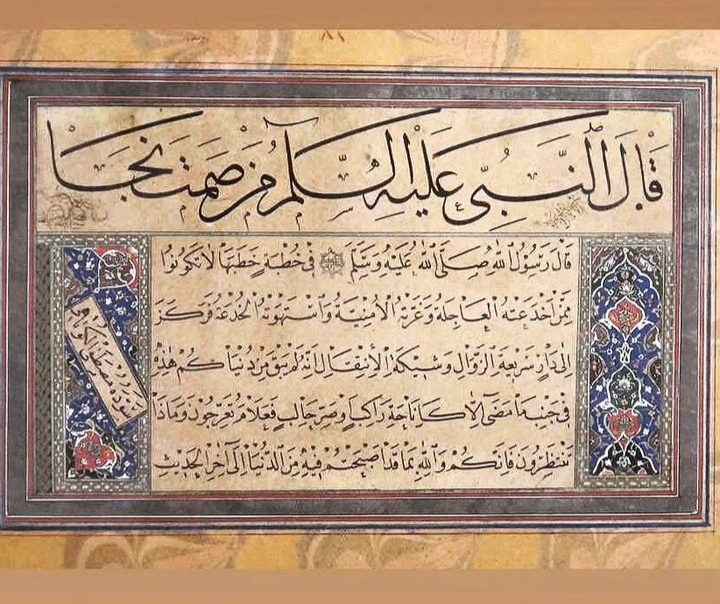 قَالَ النَّبِيُّ عَلَيْهِ السَّلَامُ مَنْ صَمَتَ نَجَا
قَالَ رَسُولُ اللهِ صَلَّى اللهُ عَلَيْهِ وَسَلَّمَ فِي خُطْبَةٍ خَطَبَهَا لَا تَكُونُوا
مِمَّنِ اخْدَعَتْهُ الْعَاجِلَةُ وَغَرَّتْهُ الْأُمْنِيَةُ وَاسْتَهْوَتْهُ الْخُدْعَةُ فَرَكَنَ
إِلَى دَارٍ سَرِيعَةِ الزَّوَالِ وَشِيكَةِ الْإِنْتِقَالِ إِنَّهُ لَمْ يَبْقَ مِنْ دُنْيَاكُمْ هٰذِهِ
فِي جَنْبِ مَا مَضَى إِلَّا كَإِنَاخَةِ رَاكِبٍ أَوْ صَرِّ حَالِبٍ فَعَلَامَ تَعْرُجُونَ وَمَاذَا
تَنْتَظِرُونَ فَإِنَّكُمْ وَاللهِ بِمَا قَدْ أَصْبَحْتُمْ فِيهِ مِنَ الدُّنْيَا إِلَى آخِرِ الْحَدِيثِ
سوده مصطفى